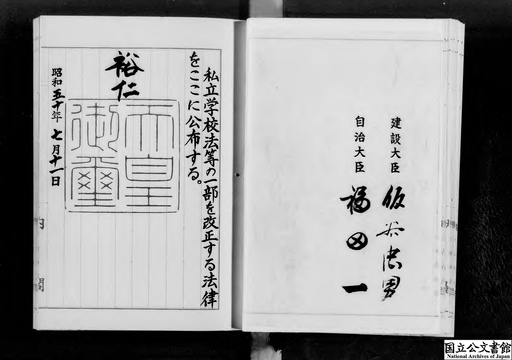 建設大臣
仮谷忠男
自治大臣
福田一
私立学校法等の一部を改正する法律
をここに公布する。
裕仁
天皇
御璽
昭和五十年七月十一日
内閣
国立公文書館
National Archives of Japan